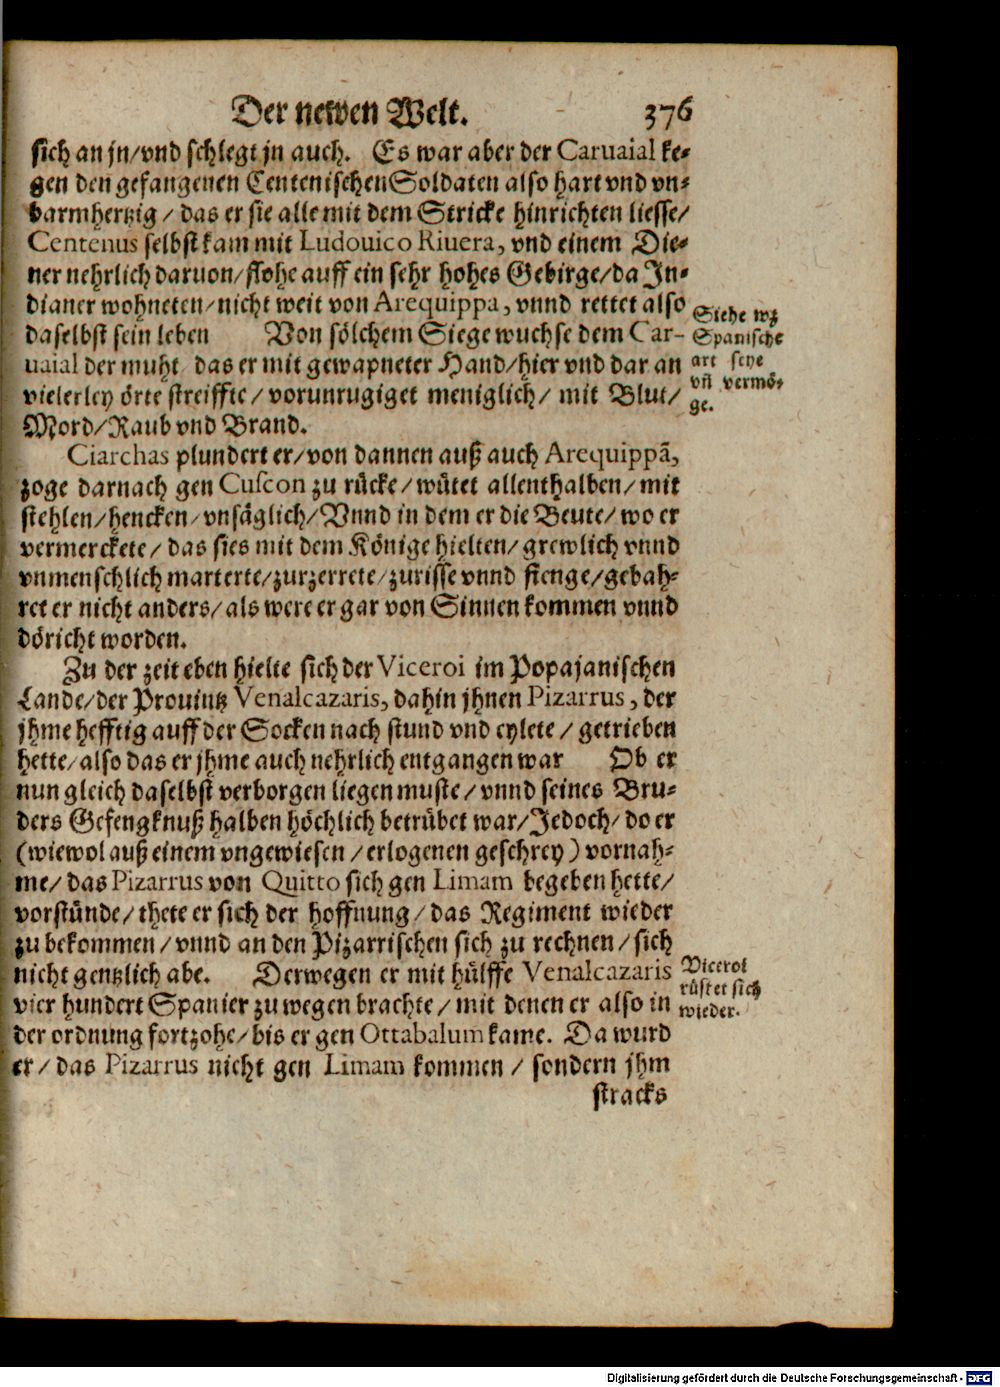 Der newen Welt. 376
sich an jn/vnd schlegt jn auch. Es war aber der Caruaial ke-
gen den gefangenen Centenischen Soldaten also hart vnd vn-
barmhertzig / das er sie alle mit dem Stricke hinrichten liesse/
Centenus selbst kam mit Ludouico Riuera, vnd einem Die-
ner nehrlich daruon/flohe auff ein sehr hohes Gebirge/da In-
dianer wohneten/nicht weit von Arequippa, vnnd rettet also
daselbst sein leben Von sölchem Siege wuchse dem Car-
uaial der muht das er mit gewapneter Hand/hier vnd dar an
vielerley örte streiffte/ vorunrugiget meniglich/ mit Blut/
Mord/Raub vnd Brand.
Siehe wz
Spanische
art seye
vñ vermö-
ge.
Ciarchas plundert er/von dannen auß auch Arequippã,
zoge darnach gen Cuscon zu rücke/wütet allenthalben/mit
stehlen/hencken/vnsäglich/Vnnd in dem er die Beute/wo er
vermerckete/das sies mit dem Könige hielten/grewlich vnnd
vnmenschlich marterte/zurzerrete/zurisse vnnd fienge/gebah-
ret er nicht anders/als were er gar von Sinnen kommen vnnd
döricht worden.
Zu der zeit eben hielte sich der Viceroi im Popajanischen
Lande/der Prouintz Venalcazaris, dahin jhnen Pizarrus, der
jhme hefftig auff der Socken nach stund vnd eylete / getrieben
hette/also das er jhme auch nehrlich entgangen war Ob er
nun gleich daselbst verborgen liegen muste/vnnd seines Bru-
ders Gefengknuß halben höchlich betrübet war/Jedoch/do er
(wiewol auß einem vngewiesen /erlogenen geschrey) vornah-
me/das Pizarrus von Quitto sich gen Limam begeben hette/
vorstünde/thete er sich der hoffnung/das Regiment wieder
zu bekommen/vnnd an den Pizarrischen sich zu rechnen/sich
nicht gentzlich abe. Derwegen er mit hülffe Venalcazaris
vier hundert Spanier zu wegen brachte/mit denen er also in
der ordnung fortzohe/bis er gen Ottabalum kame. Da wurd
er/das Pizarrus nicht gen Limam kommen / sondern jhm
Viceroi
rüstet sich
wieder.
stracks
Digitalisierung gefördert durch die Deutsche Forschungsgemeinschaft - DFG